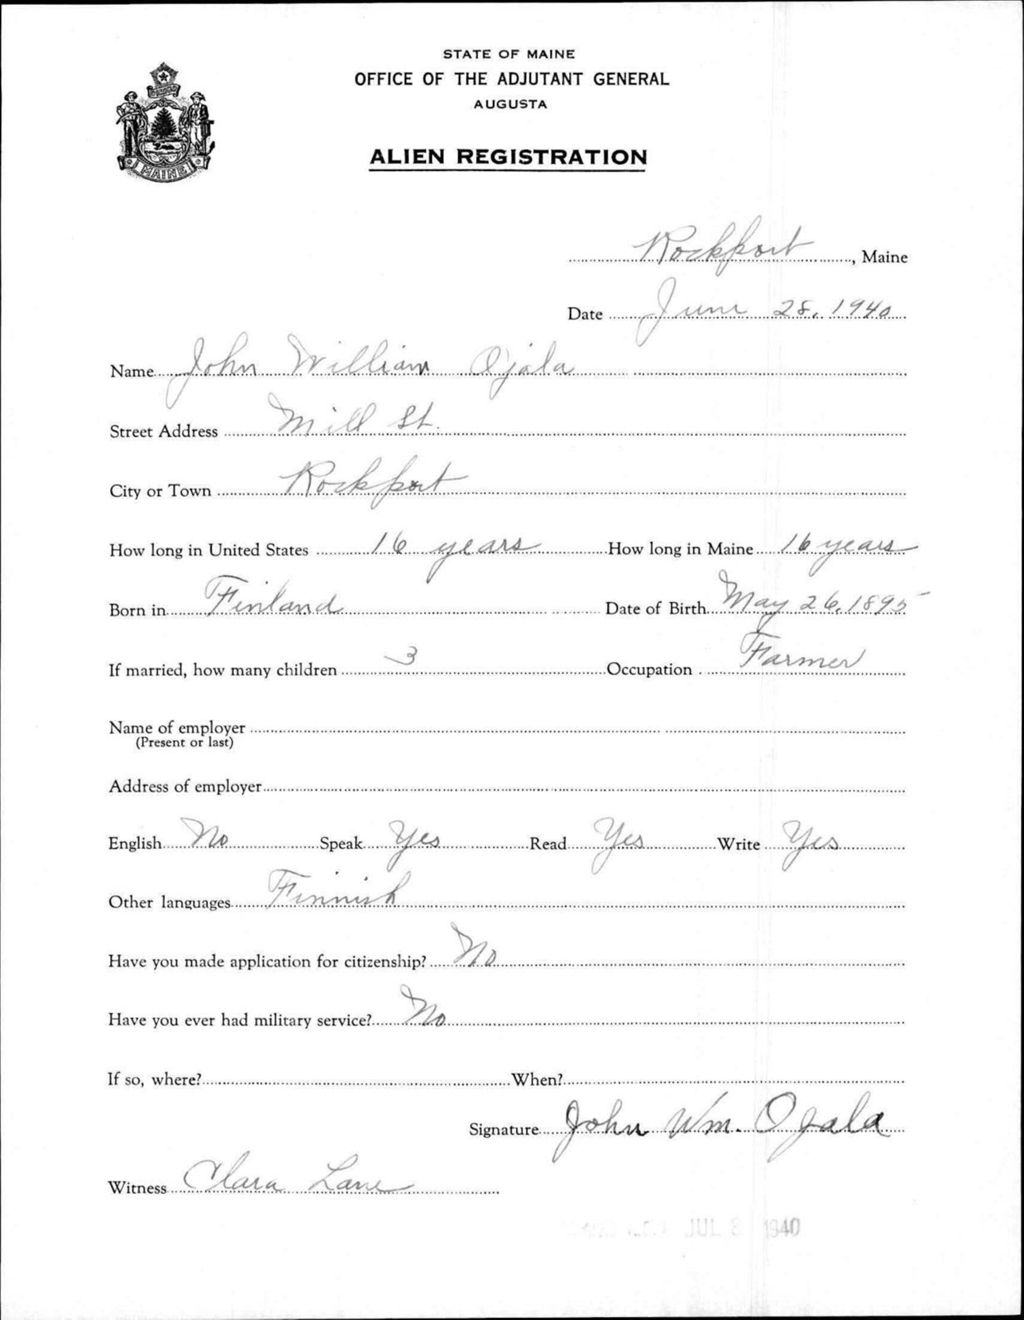 STATE OF MAINE
OFFICE OF THE ADJUTANT GENERAL
AUGUSTA
ALIEN REGISTRATION
MAINE
Rockport, Maine
Date June 28, 1940
Name John William Ojala
Street Address Mill St.
City or Town Rockport
How long in United States 16 years How long in Maine 16 years
Born in Finland Date of Birth May 26, 1895
If married, how many children 3 Occupation Farmer
Name of employer
(Present or last)
Address of employer
English No Speak Yes Read Yes Write Yes
Other languages Finnish
Have you made application for citizenship? No
Have you ever had military service? No
If so, where? When?
Signature John Wm. Ojala
Witness Clara Lane
JUL 8 1940